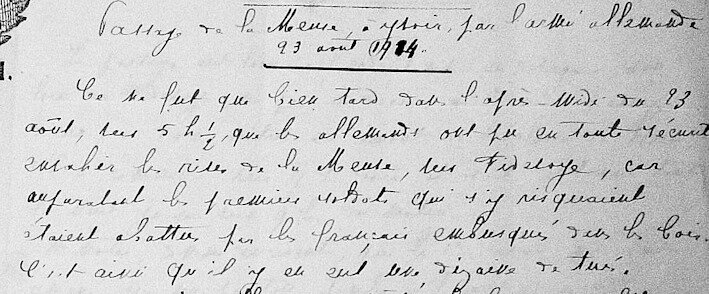 Passage de la Meuse, à Yvoir, par l'armée allemande
23 août 1914.
Ce ne fut que bien tard dans l'après-midi du 23
août, vers 5 h ½, que les allemands ont pu en toute sécurité
les rives de la Meuse, vers Fidevoye, car
auparavant les premiers soldats qui s'y risquaient
étaient abattus par les français embusqués dans les bois.
C'est ainsi qu'il y en eut une dizaine de tués.